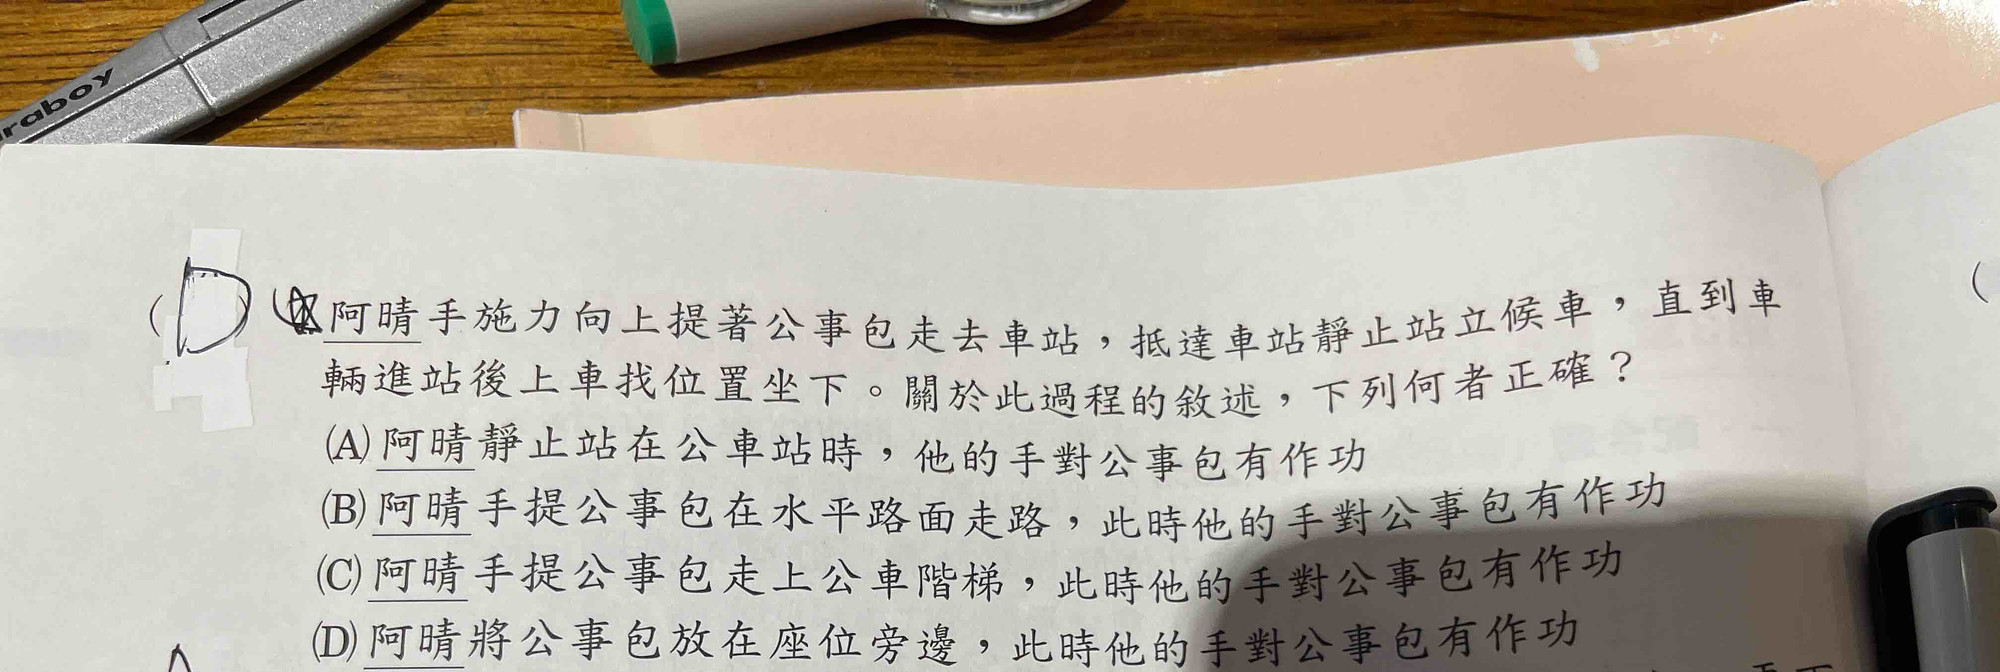 raboy
(D) 阿晴手施力向上提著公事包走去車站，抵達車站靜止站立候車，直到車
輛進站後上車找位置坐下。關於此過程的敘述，下列何者正確？
(A)阿晴靜止站在公車站時，他的手對公事包有作功
(B)阿晴手提公事包在水平路面走路，此時他的手對公事包有作功
(C)阿晴手提公事包走上公車階梯，此時他的手對公事包有作功
(D)阿晴將公事包放在座位旁邊，此時他的手對公事包有作功
(